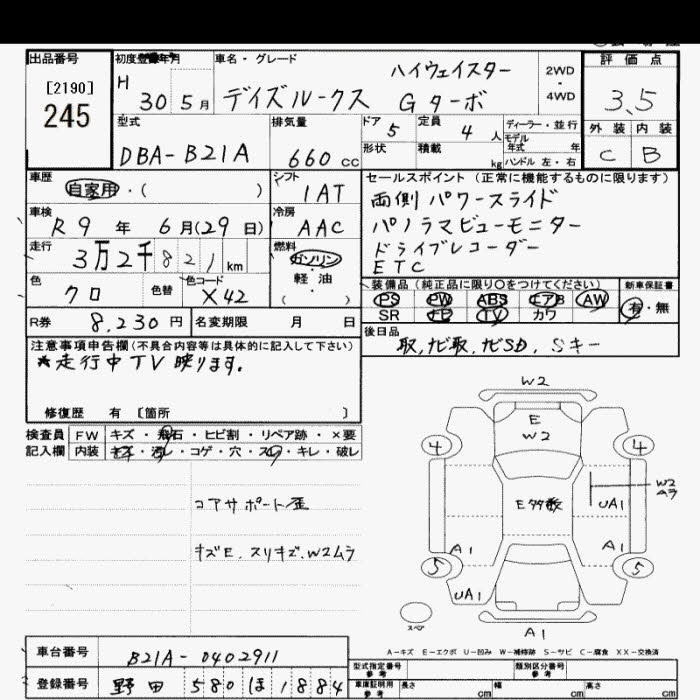 出品番号
[2190]
245
初度登録年月
H 30 5月
車名・グレード
ハイウェイスター
デイズルークス Gターボ
2WD・4WD
評価点
3.5
外装 内装
C B
型式
DBA-B21A
排気量
660 cc
ドア 5
定員 4 人
形状
積載 kg
ディーラー・並行
モデル年式 年式
ハンドル 左・右
車歴
自家用・( )
シフト
IAT
車検
R9年 6月(29日)
冷房
AAC
走行
3万2千821km
燃料
ガソリン
軽油
( )
色
クロ
色替
色コード
X42
R券
8,230円
名変期限 月 日
セールスポイント(正常に機能するものに限ります)
両側パワースライド
パノラマビューモニター
ドライブレコーダー
ETC
装備品(純正品に限り○をつけてください)
PS PW ABS エアB AW
SR ナビ TV カワ
新車保証書
有・無
後日品
取,ナビ取,ナビSD,Sキー
注意事項申告欄(不具合内容等は具体的に記入して下さい)
*走行中TV映ります.
修復歴 有 [箇所 ]
検査員記入欄
FW キズ・飛石・ヒビ割・リペア跡・×要
内装 キズ・汚レ・コゲ・穴・スレ・キレ・破レ
コアサポート歪
キズE.スリキズ.W2ムラ
W2
E
W2
4
4
E多数
W2
ムラ
UA1
A1
A1
5
5
UA1
スペア
A1
A-キズ E-エクボ U-凹み W-補修跡 S-サビ C-腐食 XX-交換済
車台番号
B21A-0402911
登録番号
野田 580 ほ 1884
型式指定番号
参考
類別区分番号
参考
車庫証明用
参考
長さ cm
幅 cm
高さ cm